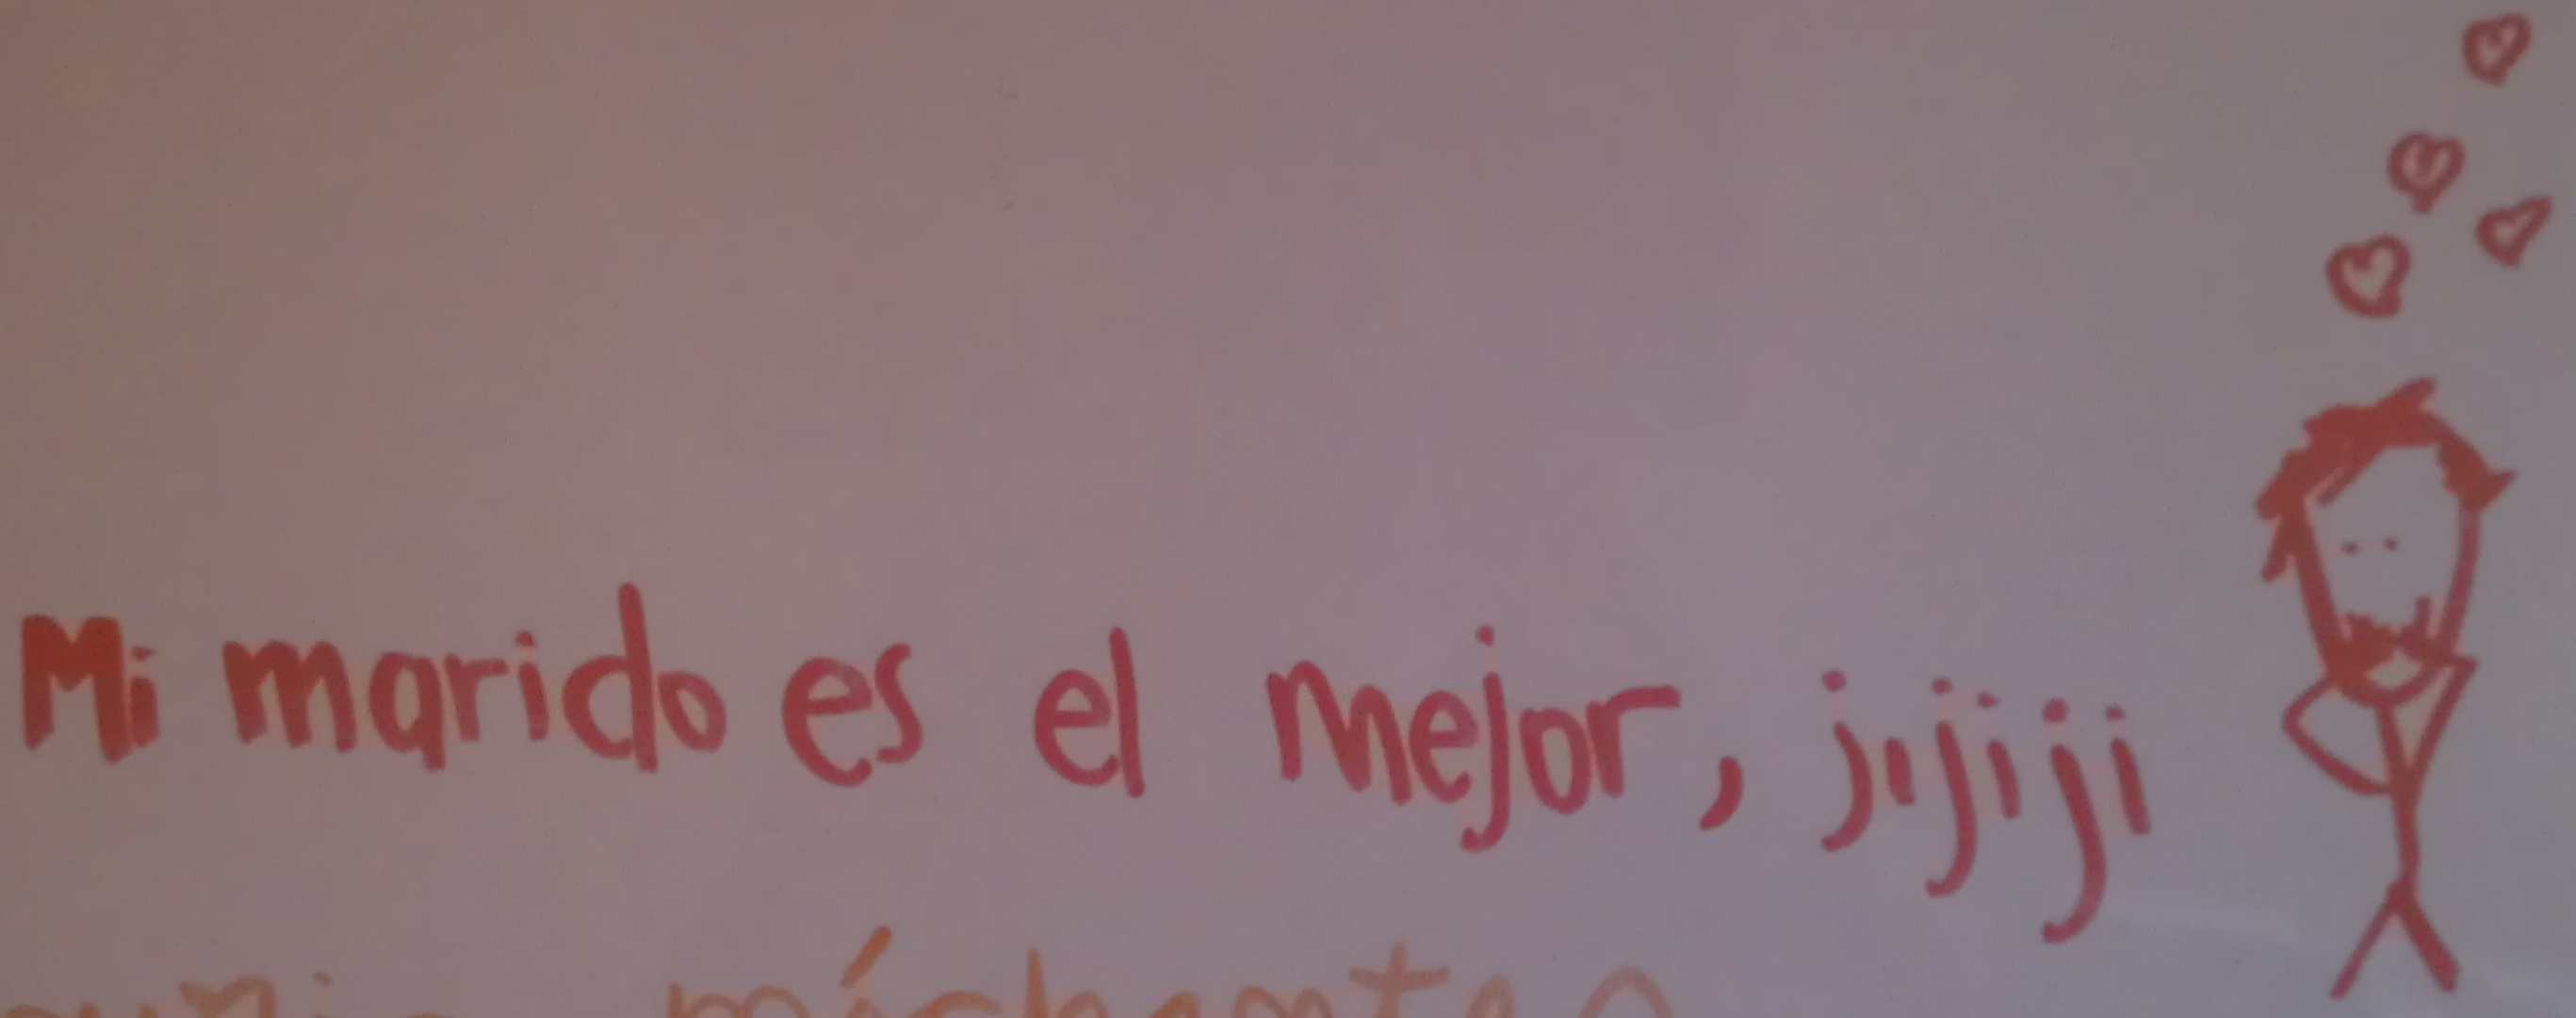 Mi marido es el mejor, jijiji